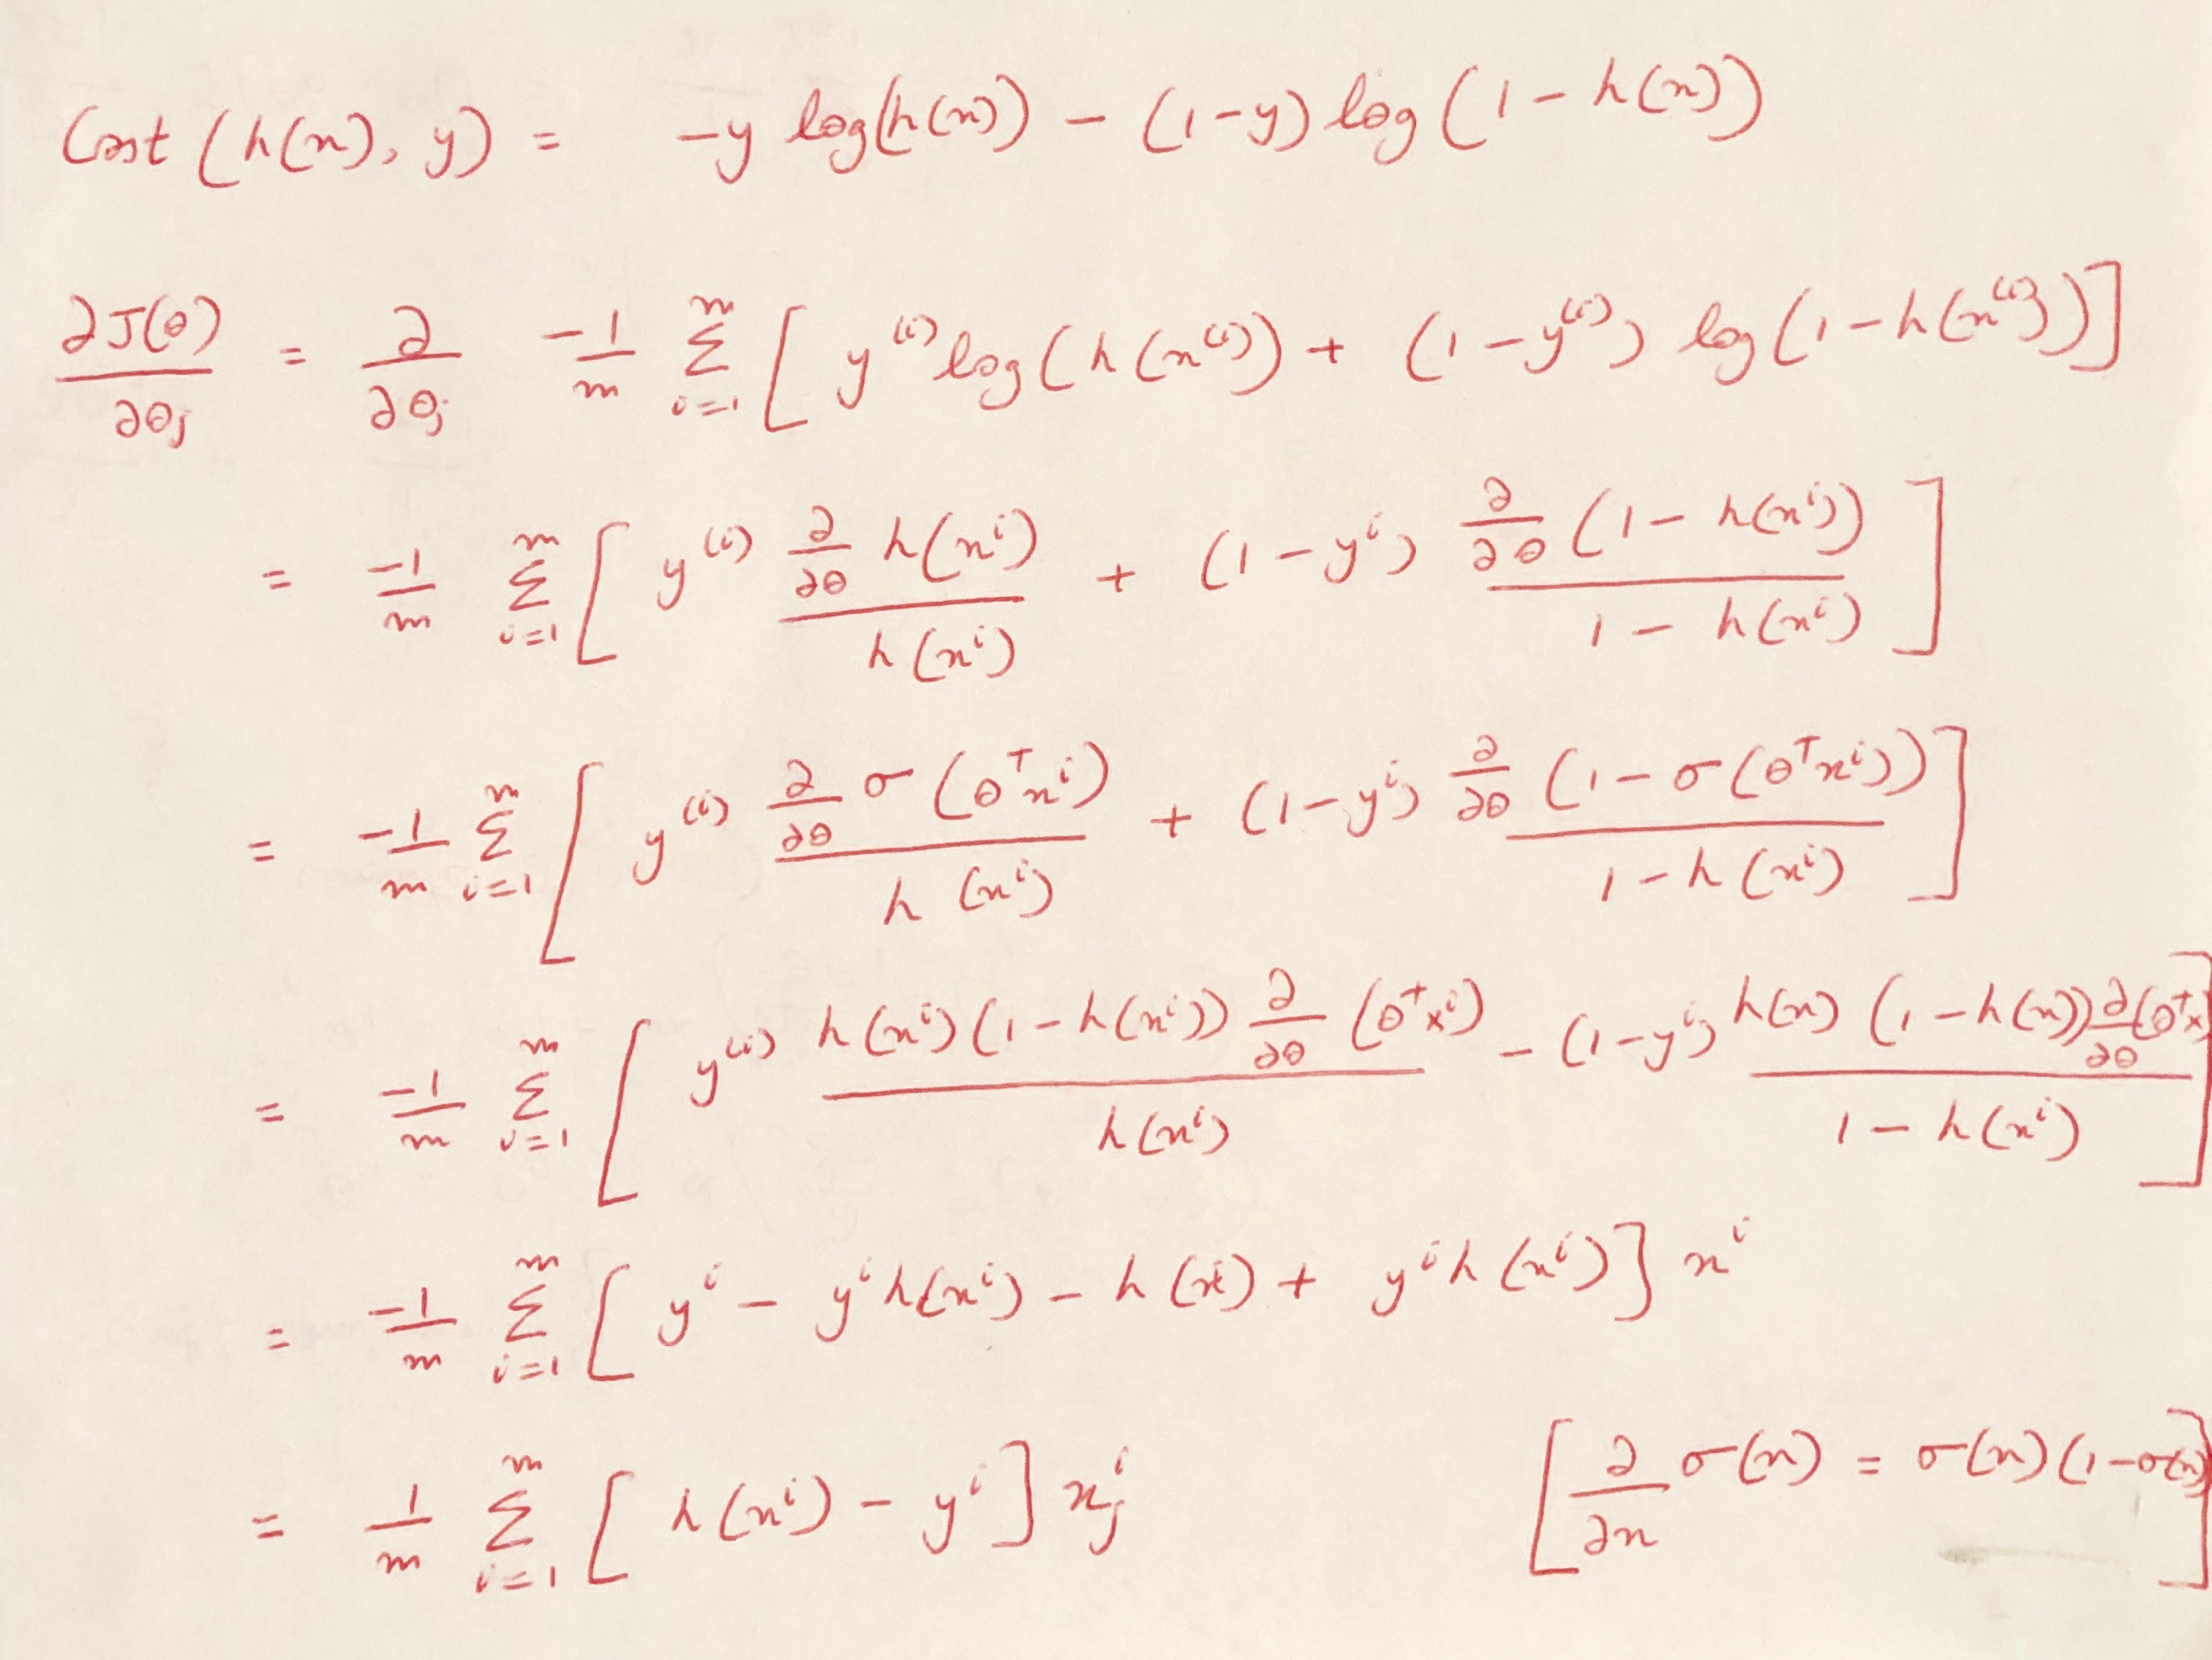 Cost (h(x), y) = -y log(h(x)) - (1-y) log (1 - h(x))
∂J(θ)/∂θj = ∂/∂θj -1/m Σ_{i=1}^{m} [ y^(i) log(h(x^(i))) + (1-y^(i)) log(1-h(x^(i))) ]
= -1/m Σ_{i=1}^{m} [ y^(i) (∂/∂θ h(x^i)) / h(x^i) + (1-y^i) (∂/∂θ (1-h(x^i))) / (1-h(x^i)) ]
= -1/m Σ_{i=1}^{m} [ y^(i) (∂/∂θ σ(θ^T x^i)) / h(x^i) + (1-y^i) (∂/∂θ (1-σ(θ^T x^i))) / (1-h(x^i)) ]
= -1/m Σ_{i=1}^{m} [ y^(i) (h(x^i)(1-h(x^i)) ∂/∂θ (θ^T x^i)) / h(x^i) - (1-y^i) (h(x)(1-h(x)) ∂/∂θ (θ^T x) / (1-h(x^i)) ]
= -1/m Σ_{i=1}^{m} [ y^i - y^i h(x^i) - h(x^i) + y^i h(x^i) ] x^i
= 1/m Σ_{i=1}^{m} [ h(x^i) - y^i ] x_j^i
[ ∂/∂x σ(x) = σ(x)(1-σ(x)) ]